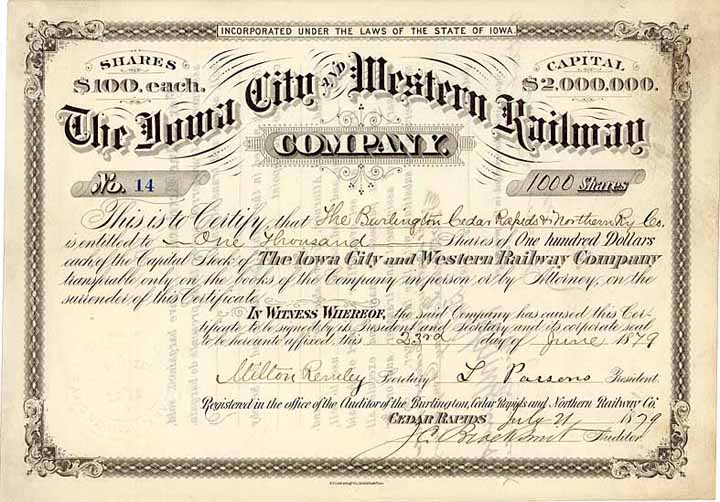 INCORPORATED UNDER THE LAWS OF THE STATE OF IOWA.
SHARES
$100. each.
CAPITAL
$2,000,000.
The Iowa City AND Western Railway
COMPANY.
No. 14
1000 Shares
This is to Certify, that The Burlington Cedar Rapids & Northern Ry Co.
is entitled to One Thousand Shares of One hundred Dollars
each, of the Capital Stock of The Iowa City and Western Railway Company
transferable only on the books of the Company in person or by Attorney, on the
surrender of this Certificate.
In Witness Whereof, the said Company has caused this Cer-
tificate to be signed by its President and Secretary and its corporate seal
to be hereunto affixed this 23rd day of June 1879
Milton Remley Secretary L Parsons President.
Registered in the office of the Auditor of the Burlington, Cedar Rapids and Northern Railway Co.
CEDAR RAPIDS July 21 1879
J C Brocksmit Auditor